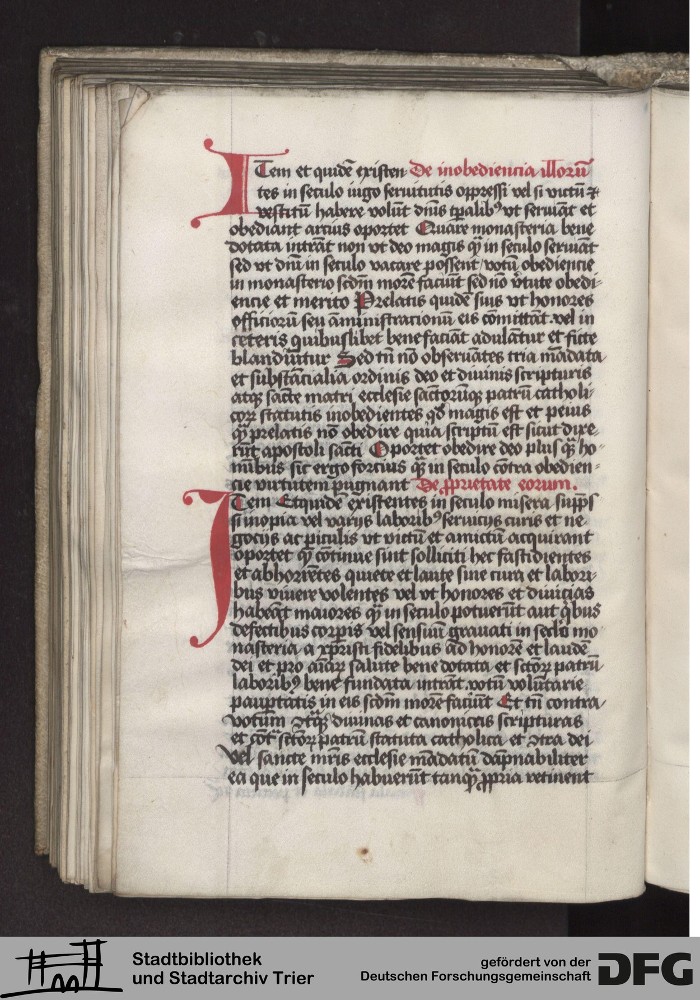 ITem et quidē existen De inobediencia illorū
tes in seculo iugo seruitutis oppressi vel si victū ⁊
vestitū habere volūt dn̄is tp̄alibꝰ vt seruiāt et
obediant arcius oportet Quare monasteria bene
dotata intrāt non vt deo magis q̄ꝫ in seculo seruiāt
sed vt dum in seculo vacare possent votū obediencie
in monasterio scd̄m morē faciūt sed nō v̄tute obedi-
encie et merito Prelatis quidē suis vt honores
officiorū seu am̄inistracionū eis cōmittāt vel in
ceteris quibuslibet bene faciāt adulātur et ficte
blandiūtur Sed tn̄ nō obseruātes tria mādata
et substācialia ordinis deo et diuinis scripturis
atqꝫ sācte matri ecclesie sāctorūqꝫ patrū catholi-
coꝝ statutis inobedientes qd̄ magis est et peius
q̄ꝫ prelatis nō obedire quia scriptū est sicut dixe-
rūt apostoli sācti Oportet obedire deo plus q̄ꝫ ho-
minibus sic ergo forcius q̄ꝫ in seculo cōtra obedien-
cie virtutem pugnant De ꝓprietate eorum.
ITem Etquidē existentes in seculo misera supp̄s
si inopia vel varijs laboribꝰ seruicijs curis et ne-
gocijs ac piculis vt victū et amictū acquirant
oportet q̄ꝫ cōtinue sint solliciti hec fastidientes
et abhorrētes quiete et laute sine cura et labori-
bus viuere volentes vel vt honores et diuicias
habeāt maiores q̄ꝫ in seculo potuerūt aut q̄ibus
defectibus corꝑis vel sensiuū grauati in seclo mo
nasteria a xpristi fidelibus ad honorē et laudē
dei et pro aīaꝝ salute bene dotata et sctōꝝ patrū
laboribꝰ bene fundata intrāt votū volūtarie
pauptatis in eis scd̄m morē faciūt Et tn̄ contra
votum ꝯtrāqꝫ diuinas et canonicas scripturas
et cōt̄ sctōꝝ patrū statuta catholica et ꝯtra dei
vel sancte mr̄is ecclesie mādatū dāpnabiliter
ea que in seculo habuerūt tanqꝫ ꝓpria retinent
Stadtbibliothek
und Stadtarchiv Trier
gefördert von der
Deutschen Forschungsgemeinschaft
DFG